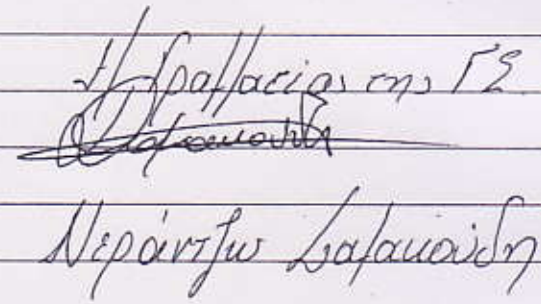 Η Γραμματέας της ΓΣ
Νεράντζω Σαμακούδη